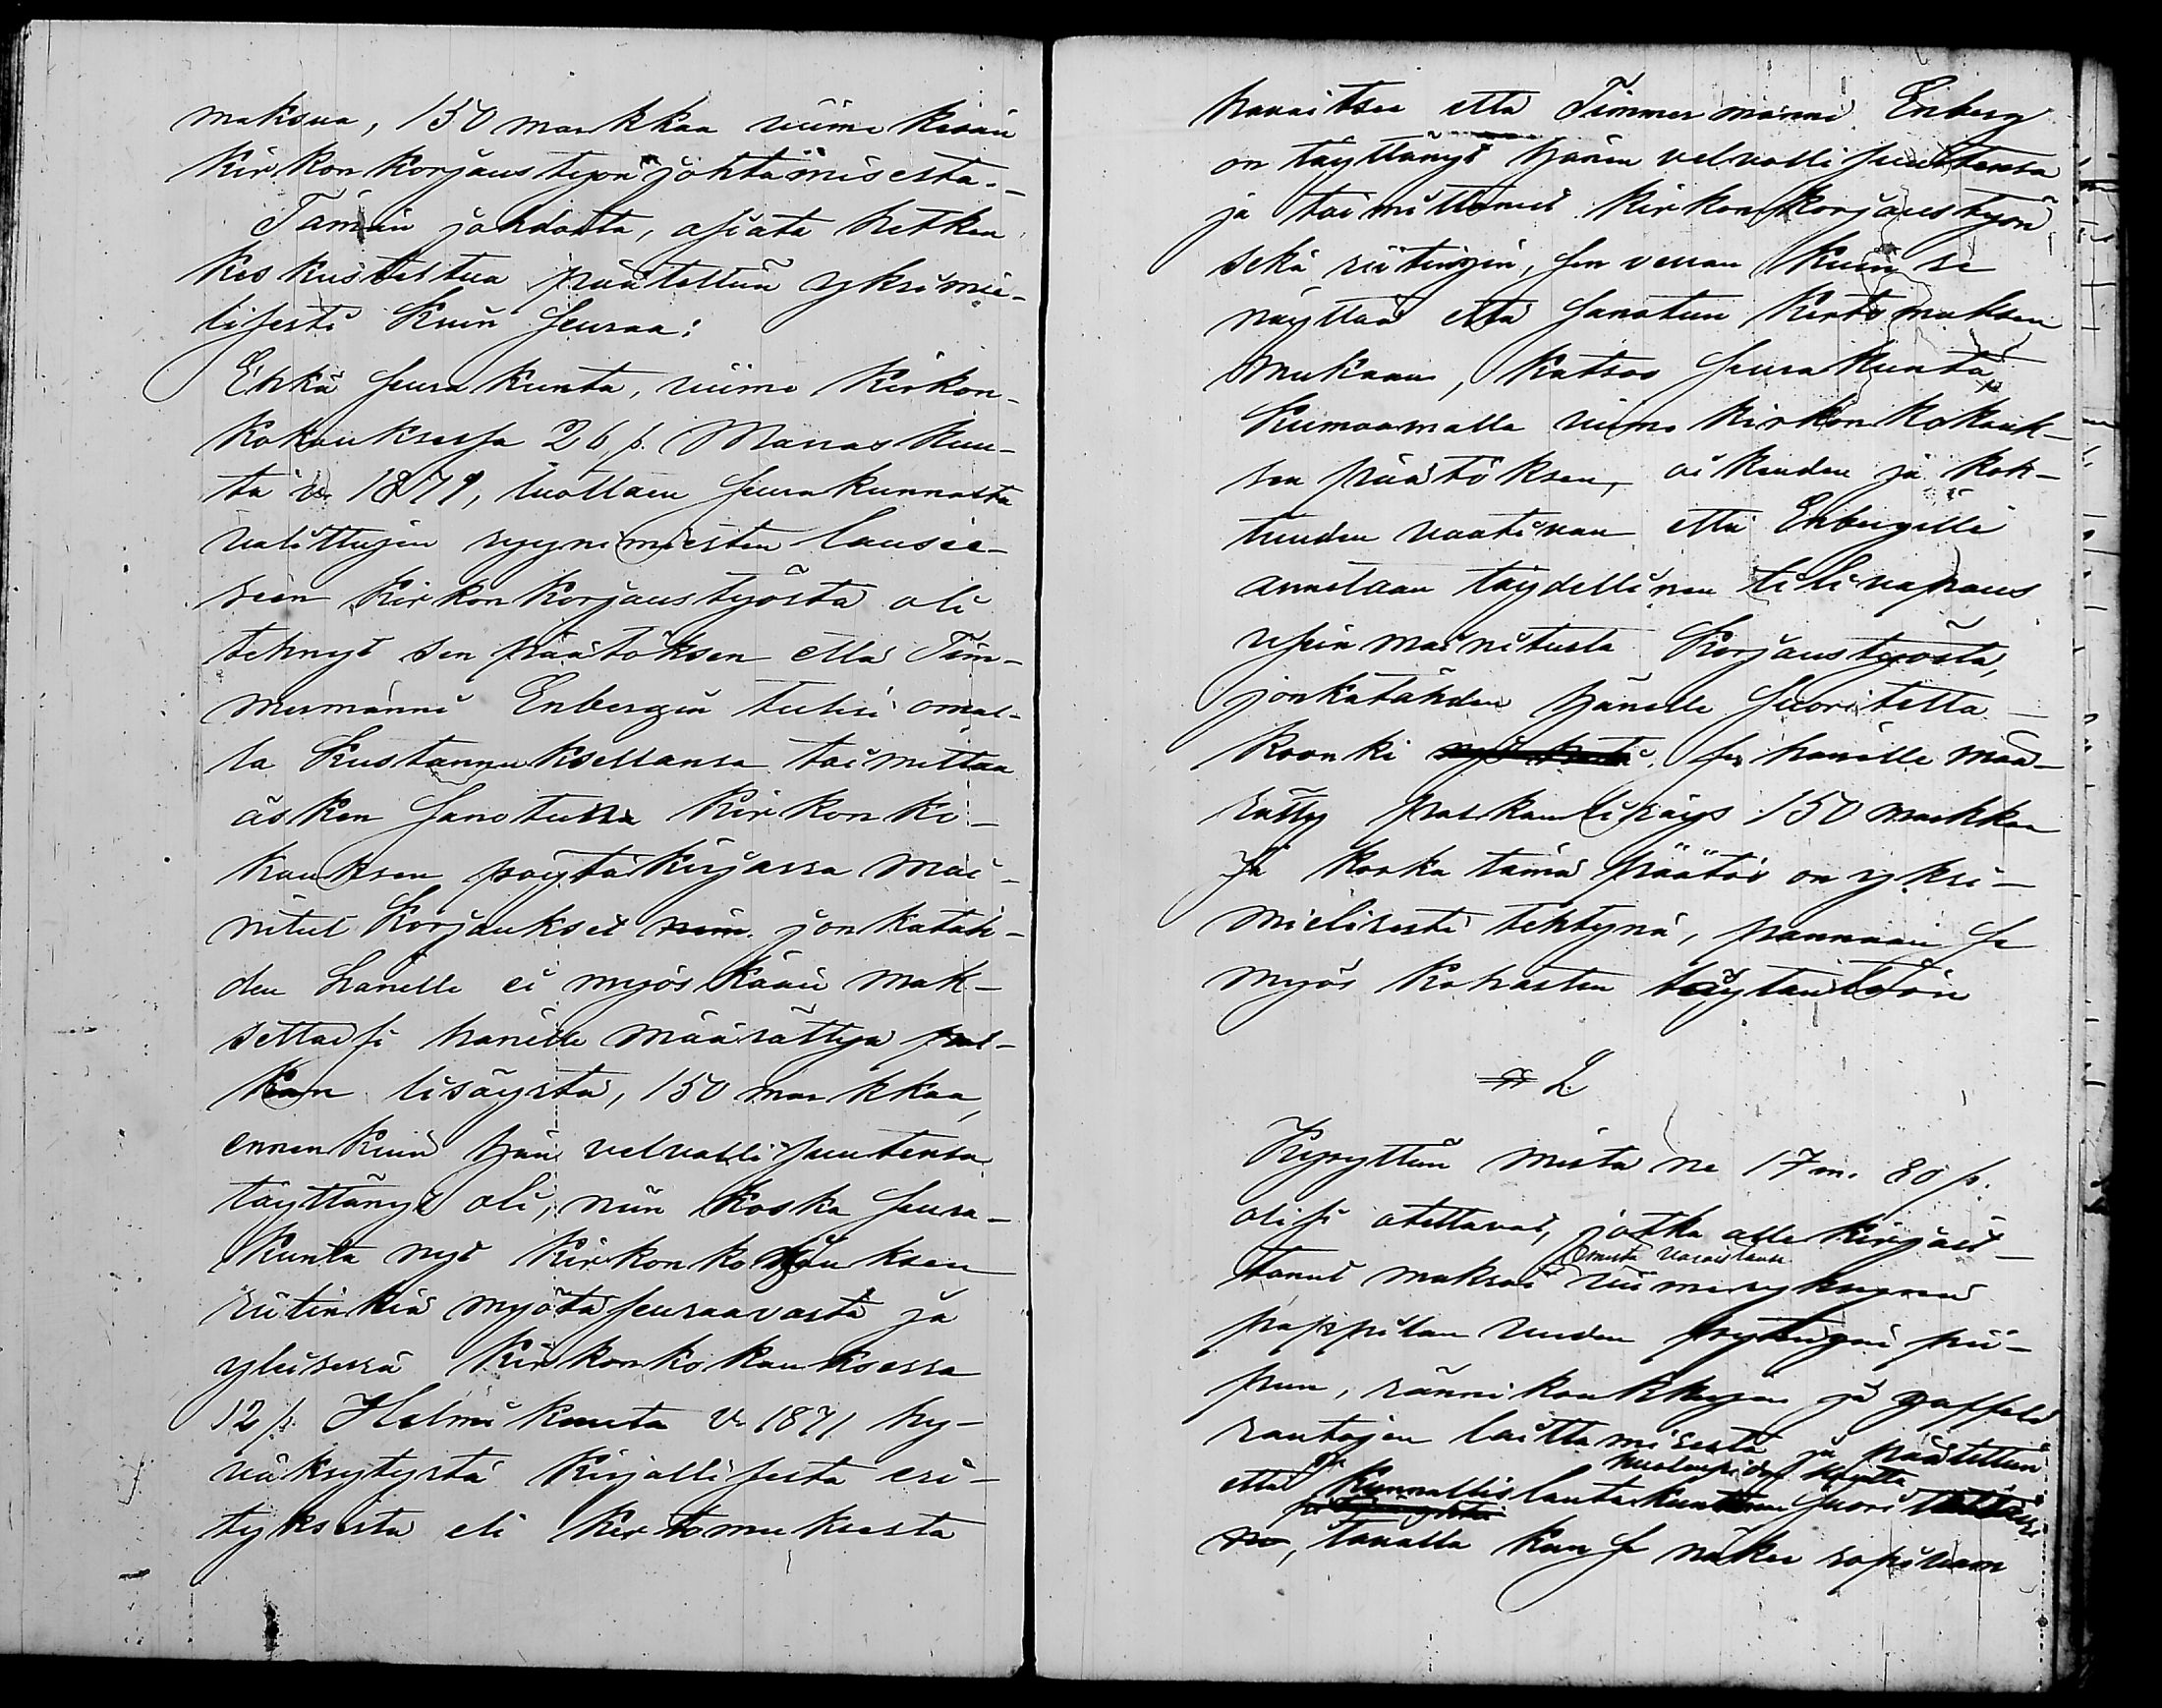 maksua, 150 markkaa viime kesän
kirkonkorjaustyön johtamisesta.—
Tämän johdosta, asiata hetken
keskusteltua päätettiin yksimie-
lisesti kuin seuraa:
Ehkä seurakunta, viime kirkon-
kokouksessa 26 p. Marraskuu-
ta v. 1871, luottaen seurakunnasta
valittujen syynimiesten lausee-
seen kirkonkorjaustyöstä oli
tehnyt sen päätöksen että Tim-
mermanni Enbergin tulisi omal-
la kustannuksellansa toimittaa
äsken sanotussa kirkonko-
kouksen pöytäkirjassa mai-
nitut korjaukset niin jonkatäh-
den hänelle ei myöskään mak-
settaisi hänelle määrättyä pal-
kan lisäystä, 150 markkaa,
ennenkuin hän velvollisuutensa
täyttänyt oli, niin koska seura-
kunta nyt kirkonkokouksen
sitinkiä myötäseuraavasta ja
yleisessä kirkonkokouksessa
12 p. Helmikuuta v. 1871 hy-
väksytystä kirjallisesta esi-
tyksestä eli kertomuksesta
havaitsee että Timmermanni Enberg
on täyttänyt hänen velvollisuutensa
ja toimittanut kirkonkorjaustyön
sekä siitingin, sen verran kuin se
näyttää että sanotun kertomuksen
mukaan, katsoo seurakunta
kumoamalla viime kirkonkokouk-
sen päätöksen, oikeuden ja koh-
tuuden vaativan että Enbergille
annetaan täydellinen tilivapaus
usein mainitusta korjaustyöstä,
jonkatähden hänelle suoritetta-
koonki se hänelle mää-
rätty palkanlisäys 150 markkaa
Ja koska tämä päätös on yksi-
mielisesti tehtynä, pannaan se
myös kohasten täytäntöön
§ 2
Kysyttiin mistä ne 17 m. 80 p.
olisi otettavat, jotka allekirjoit-
omista varoistansa
tanut maksoi viimesyksynä
pappilan uuden pii-
pun, ja
rautojen laittamisesta ja päätettiin
käytta
että kunnallislautakunnan
no, tavalla kun se näkee sopivan